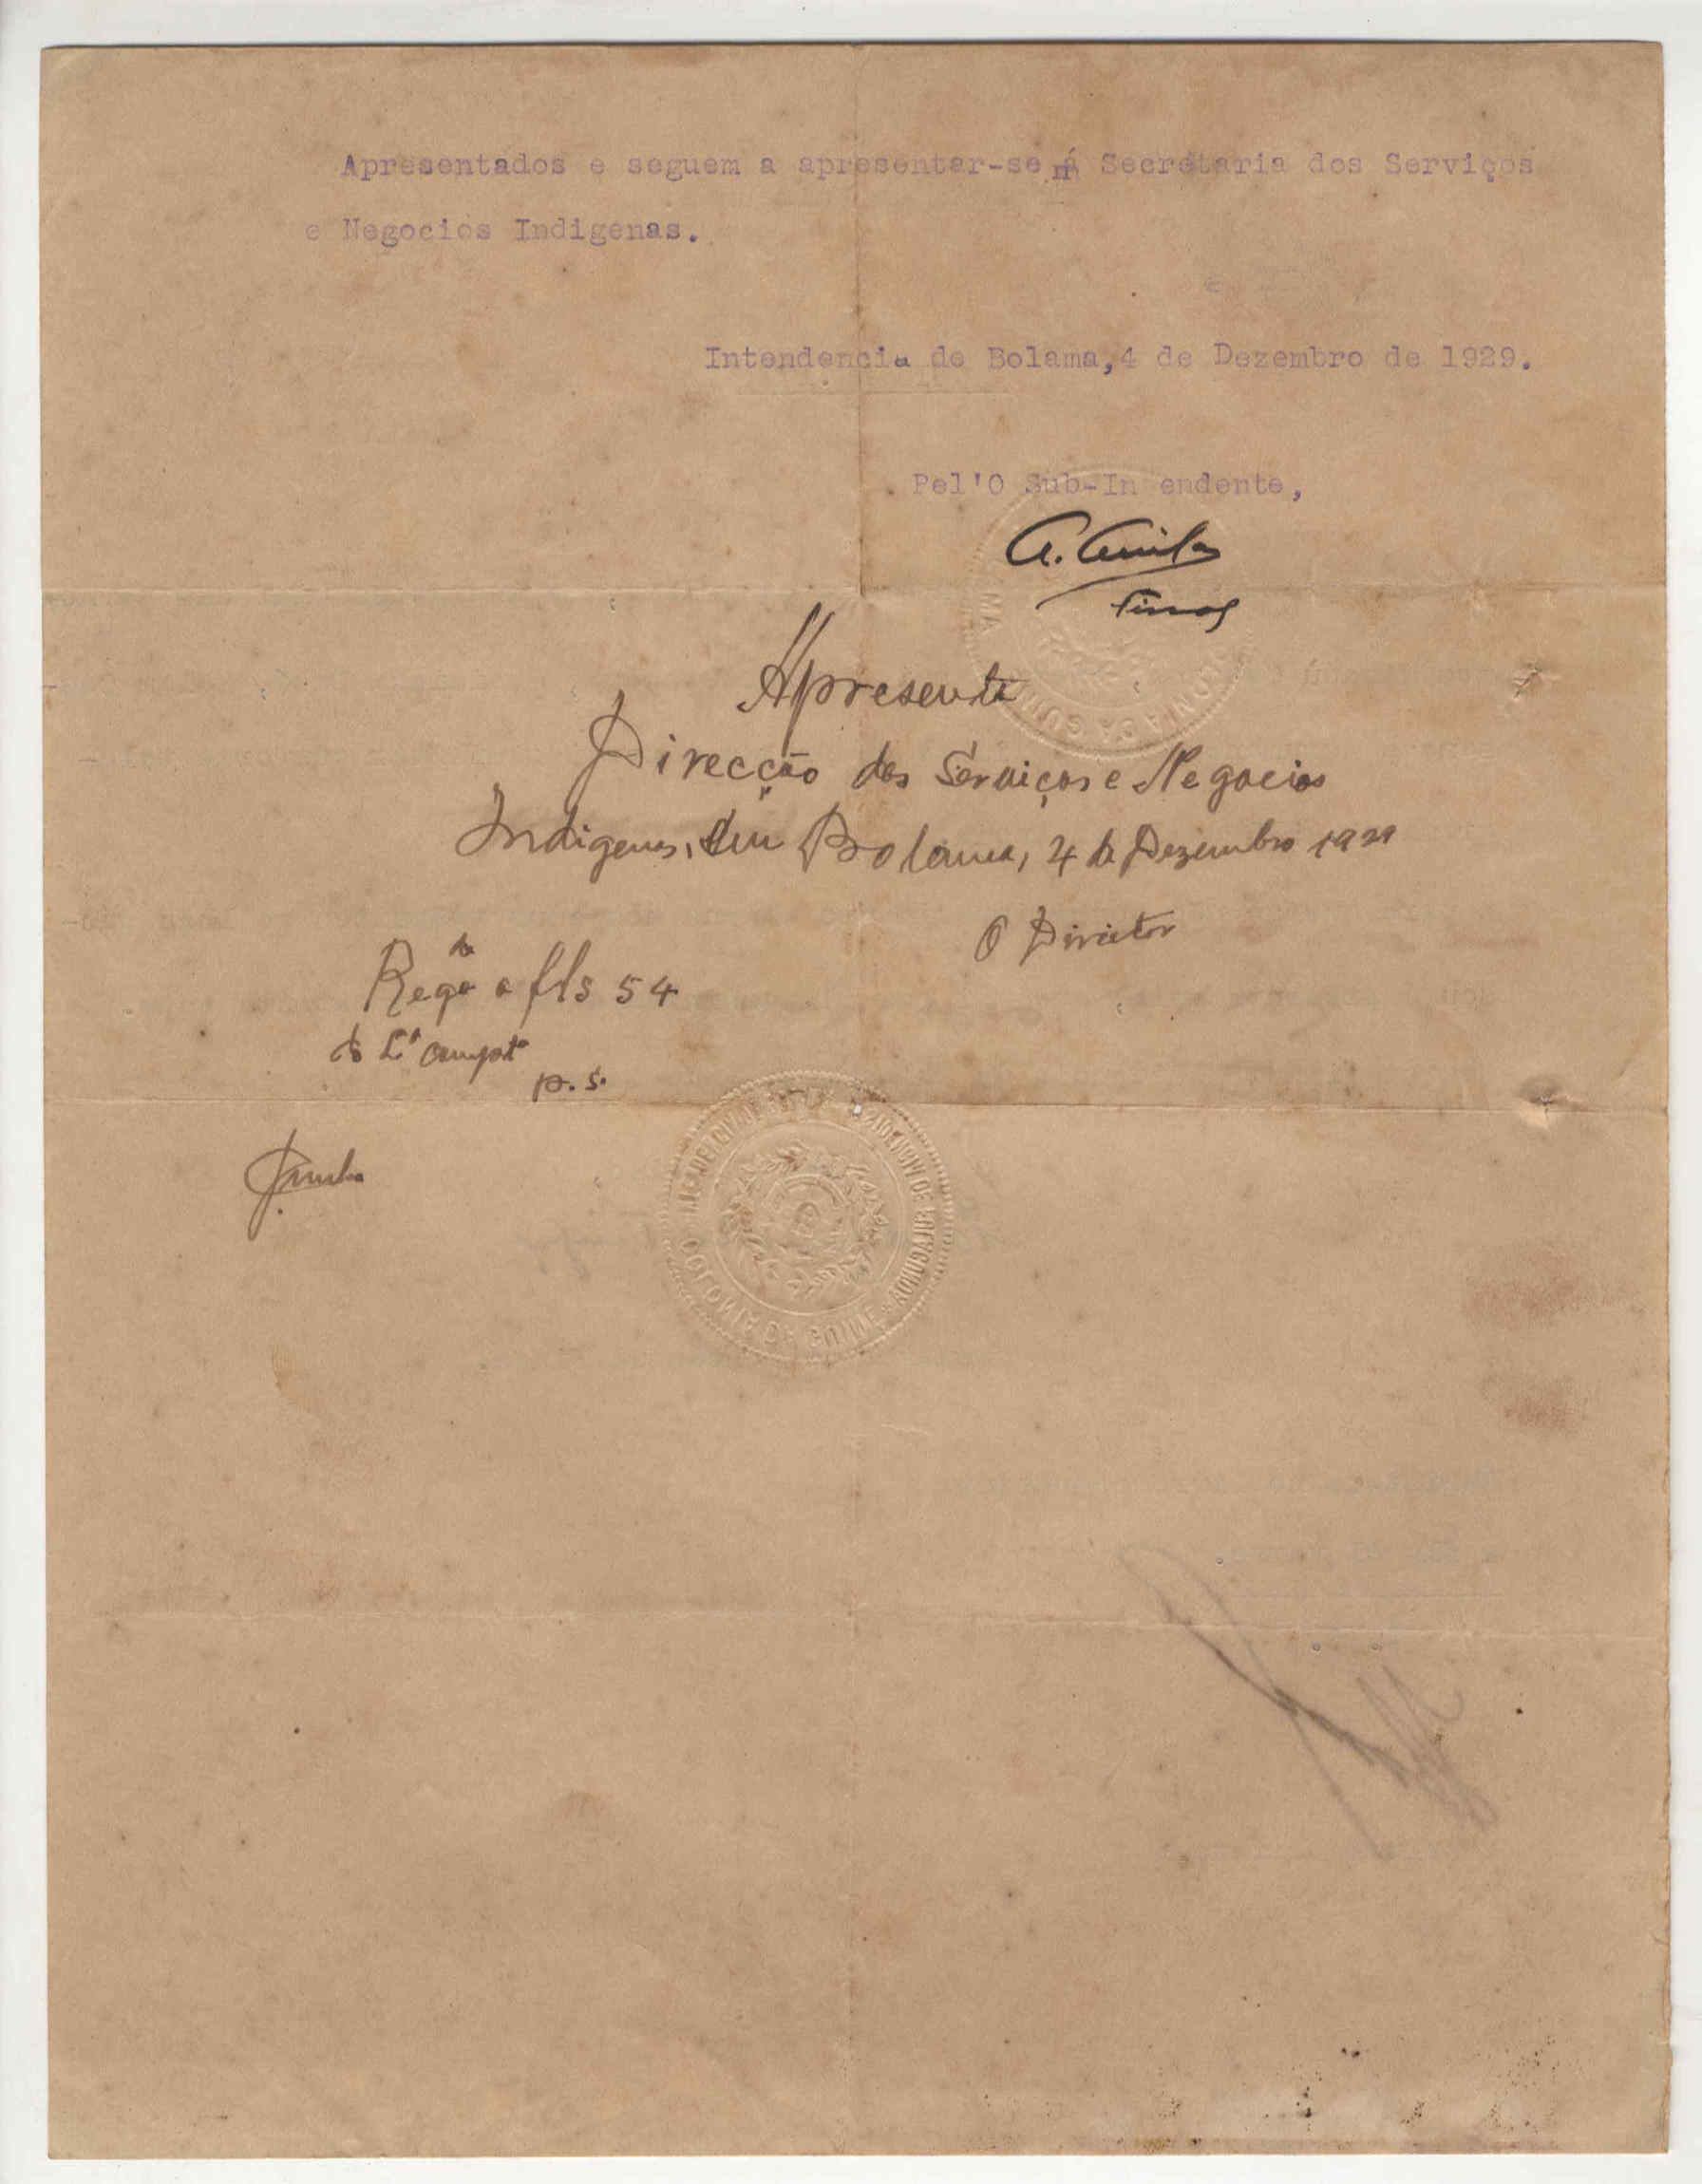 Apresentados e seguem a apresentar-se á Secretaria dos Serviços
e Negocios Indigenas.
Intendencia de Bolama,4 de Dezembro de 1929.
Pel'O Sub-In endente,
Apresente
Direcção dos Serviços e Negocios
Indigenas, em Bolama, 4 de Dezembro 1929
O Director
Regdo a fls 54
do Lº compte
p. s.
COLONIA DA GUINE